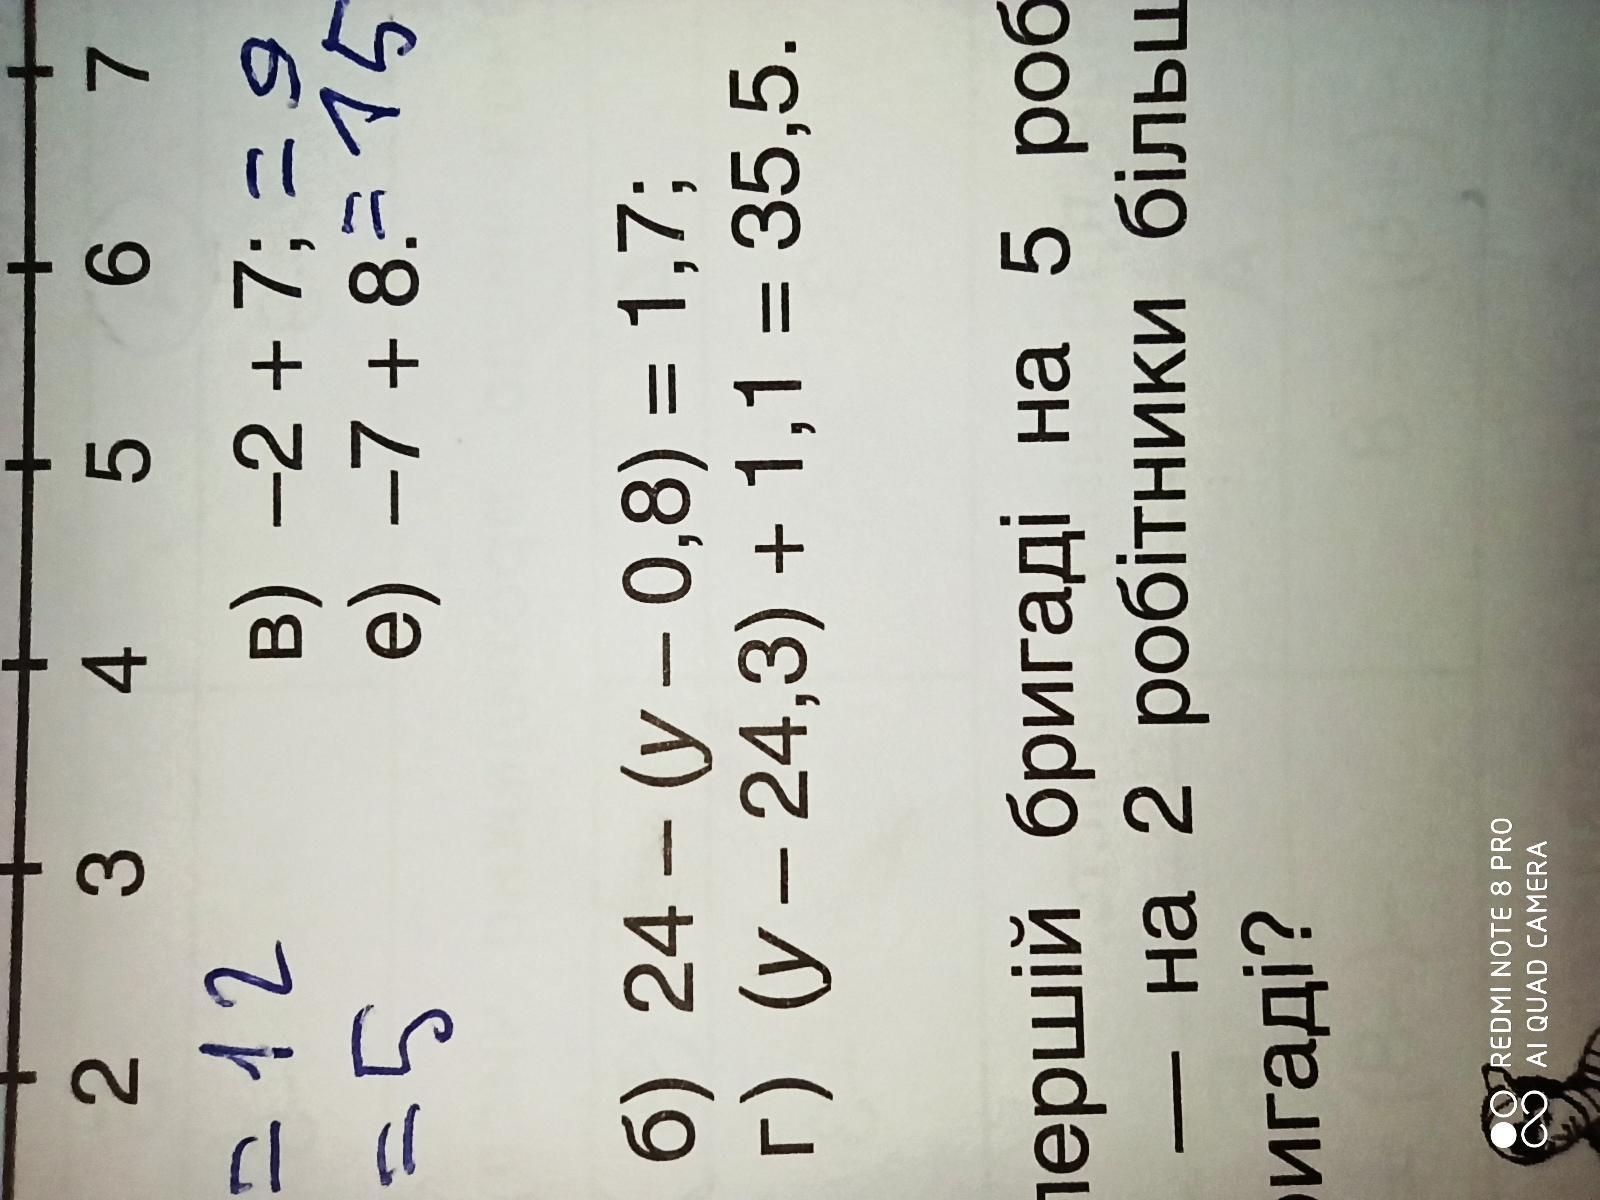 2 3 4 5 6 7
= 12 в) –2 + 7; = 9
= 5 е) –7 + 8. = 15
б) 24 – (y – 0,8) = 1,7;
г) (y – 24,3) + 1,1 = 35,5.
першій бригаді на 5 роб
— на 2 робітники більш
ригаді?
REDMI NOTE 8 PRO
AI QUAD CAMERA